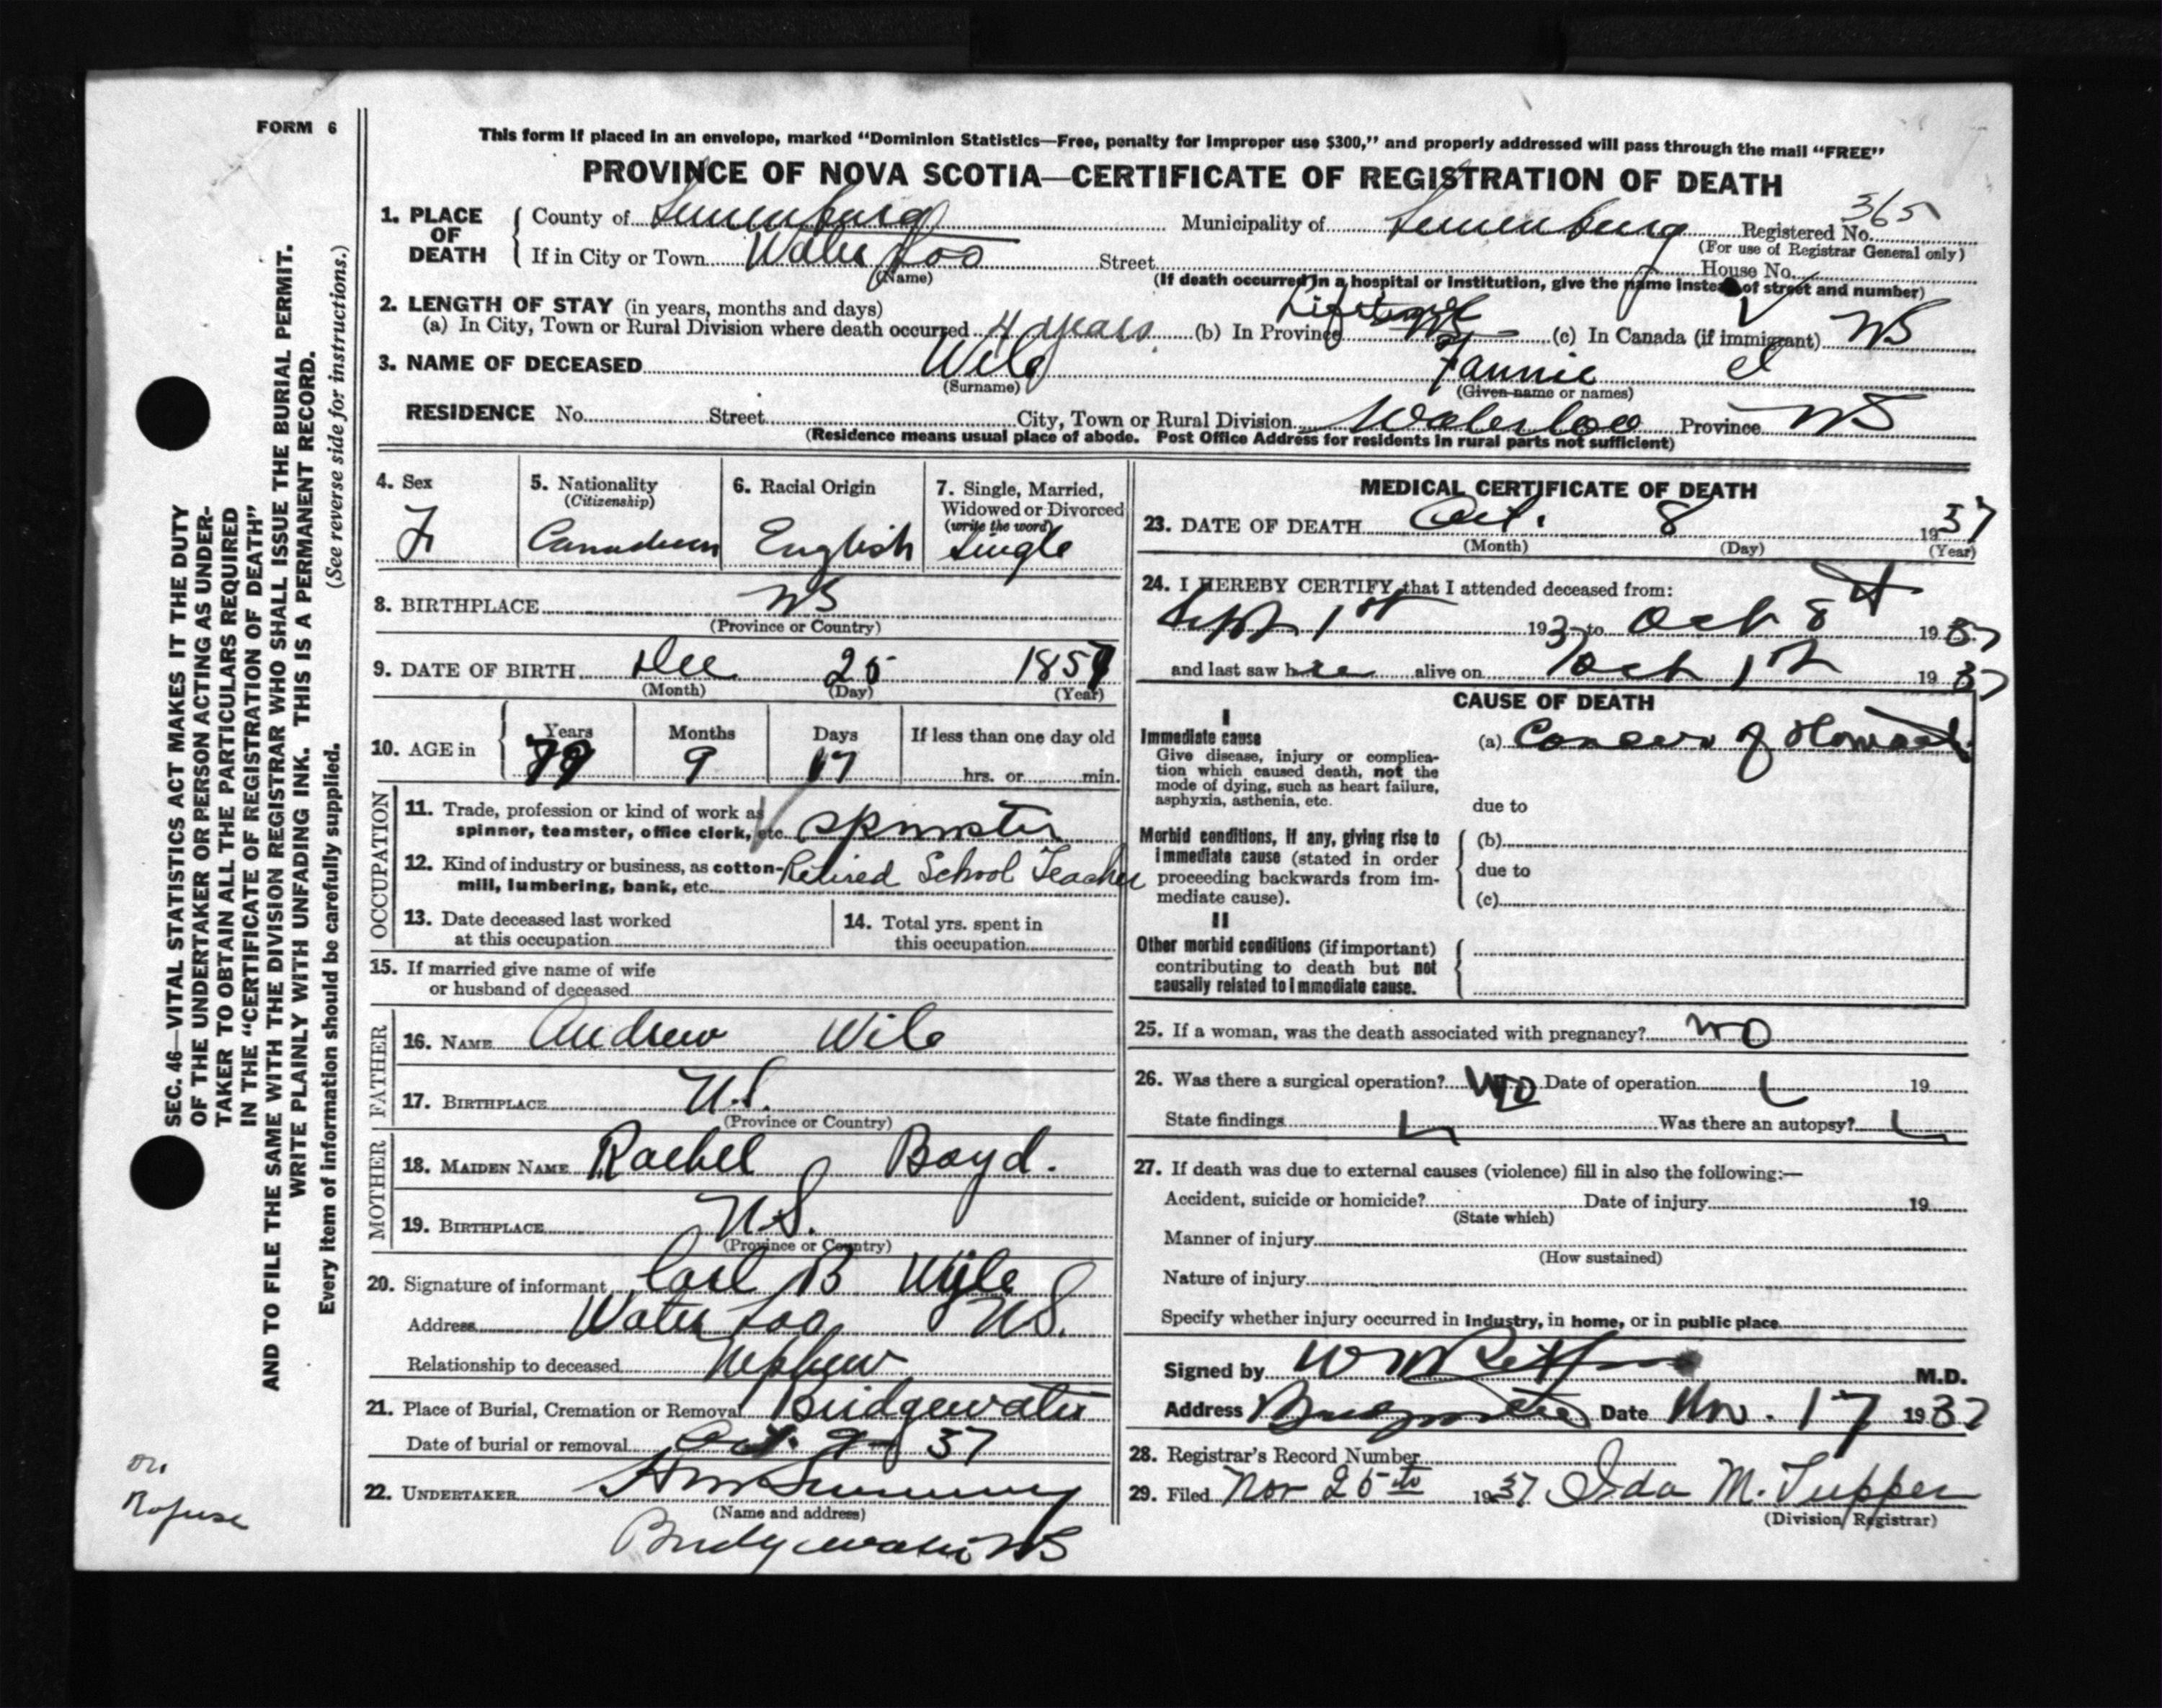 FORM 6
This form if placed in an envelope, marked "Dominion Statistics—Free, penalty for improper use $300," and properly addressed will pass through the mail "FREE"
PROVINCE OF NOVA SCOTIA—CERTIFICATE OF REGISTRATION OF DEATH
1. PLACE OF DEATH
County of Lunenburg Municipality of Lunenburg Registered No. 365
(For use of Registrar General only)
If in City or Town Water Loo Street House No.
(Name) (If death occurred in a hospital or institution, give the name instead of street and number)
2. LENGTH OF STAY (in years, months and days)
(a) In City, Town or Rural Division where death occurred 4 years (b) In Province Lifetime (c) In Canada (if immigrant) NS
3. NAME OF DECEASED Wile Fannie
(Surname) (Given name or names)
RESIDENCE No. Street City, Town or Rural Division Waterloo Province NS
(Residence means usual place of abode. Post Office Address for residents in rural parts not sufficient)
4. Sex F
5. Nationality (Citizenship) Canadian
6. Racial Origin English
7. Single, Married, Widowed or Divorced (write the word) Single
8. BIRTHPLACE NS
(Province or Country)
9. DATE OF BIRTH Dec 25 1857
(Month) (Day) (Year)
10. AGE in Years Months Days If less than one day old
79 9 17 hrs. or min.
OCCUPATION
11. Trade, profession or kind of work as spinner, teamster, office clerk, etc. Spinster
12. Kind of industry or business, as cotton-mill, lumbering, bank, etc. Retired School Teacher
13. Date deceased last worked at this occupation
14. Total yrs. spent in this occupation
15. If married give name of wife or husband of deceased
FATHER
16. NAME Andrew Wile
17. BIRTHPLACE N.S.
(Province or Country)
MOTHER
18. MAIDEN NAME Rachel Boyd.
19. BIRTHPLACE N.S.
(Province or Country)
20. Signature of informant Carl B Wile
Address Water Loo NS.
Relationship to deceased Nephew
21. Place of Burial, Cremation or Removal Bridgewater
Date of burial or removal Oct. 9 37
22. UNDERTAKER
(Name and address)
Bridgewater NS
MEDICAL CERTIFICATE OF DEATH
23. DATE OF DEATH Oct. 8 1937
(Month) (Day) (Year)
24. I HEREBY CERTIFY that I attended deceased from:
Sept 1st 1937 to Oct 8th 1937
and last saw her alive on Oct 1st 1937
CAUSE OF DEATH
I
Immediate cause
Give disease, injury or complication which caused death, not the mode of dying, such as heart failure, asphyxia, asthenia, etc.
(a) Cancer of Stomach
due to
Morbid conditions, if any, giving rise to immediate cause (stated in order proceeding backwards from immediate cause).
(b)
due to
(c)
II
Other morbid conditions (if important) contributing to death but not causally related to immediate cause.
25. If a woman, was the death associated with pregnancy? no
26. Was there a surgical operation? No Date of operation 19
State findings Was there an autopsy?
27. If death was due to external causes (violence) fill in also the following:—
Accident, suicide or homicide? Date of injury 19
(State which)
Manner of injury
(How sustained)
Nature of injury
Specify whether injury occurred in industry, in home, or in public place
Signed by M.D.
Address Bridgewater Date Nov. 17 1937
28. Registrar's Record Number
29. Filed Nov 25th 1937 Ida M. Tupper
(Division Registrar)
SEC. 46—VITAL STATISTICS ACT MAKES IT THE DUTY
OF THE UNDERTAKER OR PERSON ACTING AS UNDER-
TAKER TO OBTAIN ALL THE PARTICULARS REQUIRED
IN THE "CERTIFICATE OF REGISTRATION OF DEATH"
AND TO FILE THE SAME WITH THE DIVISION REGISTRAR WHO SHALL ISSUE THE BURIAL PERMIT.
WRITE PLAINLY WITH UNFADING INK. THIS IS A PERMANENT RECORD.
Every item of information should be carefully supplied. (See reverse side for instructions.)